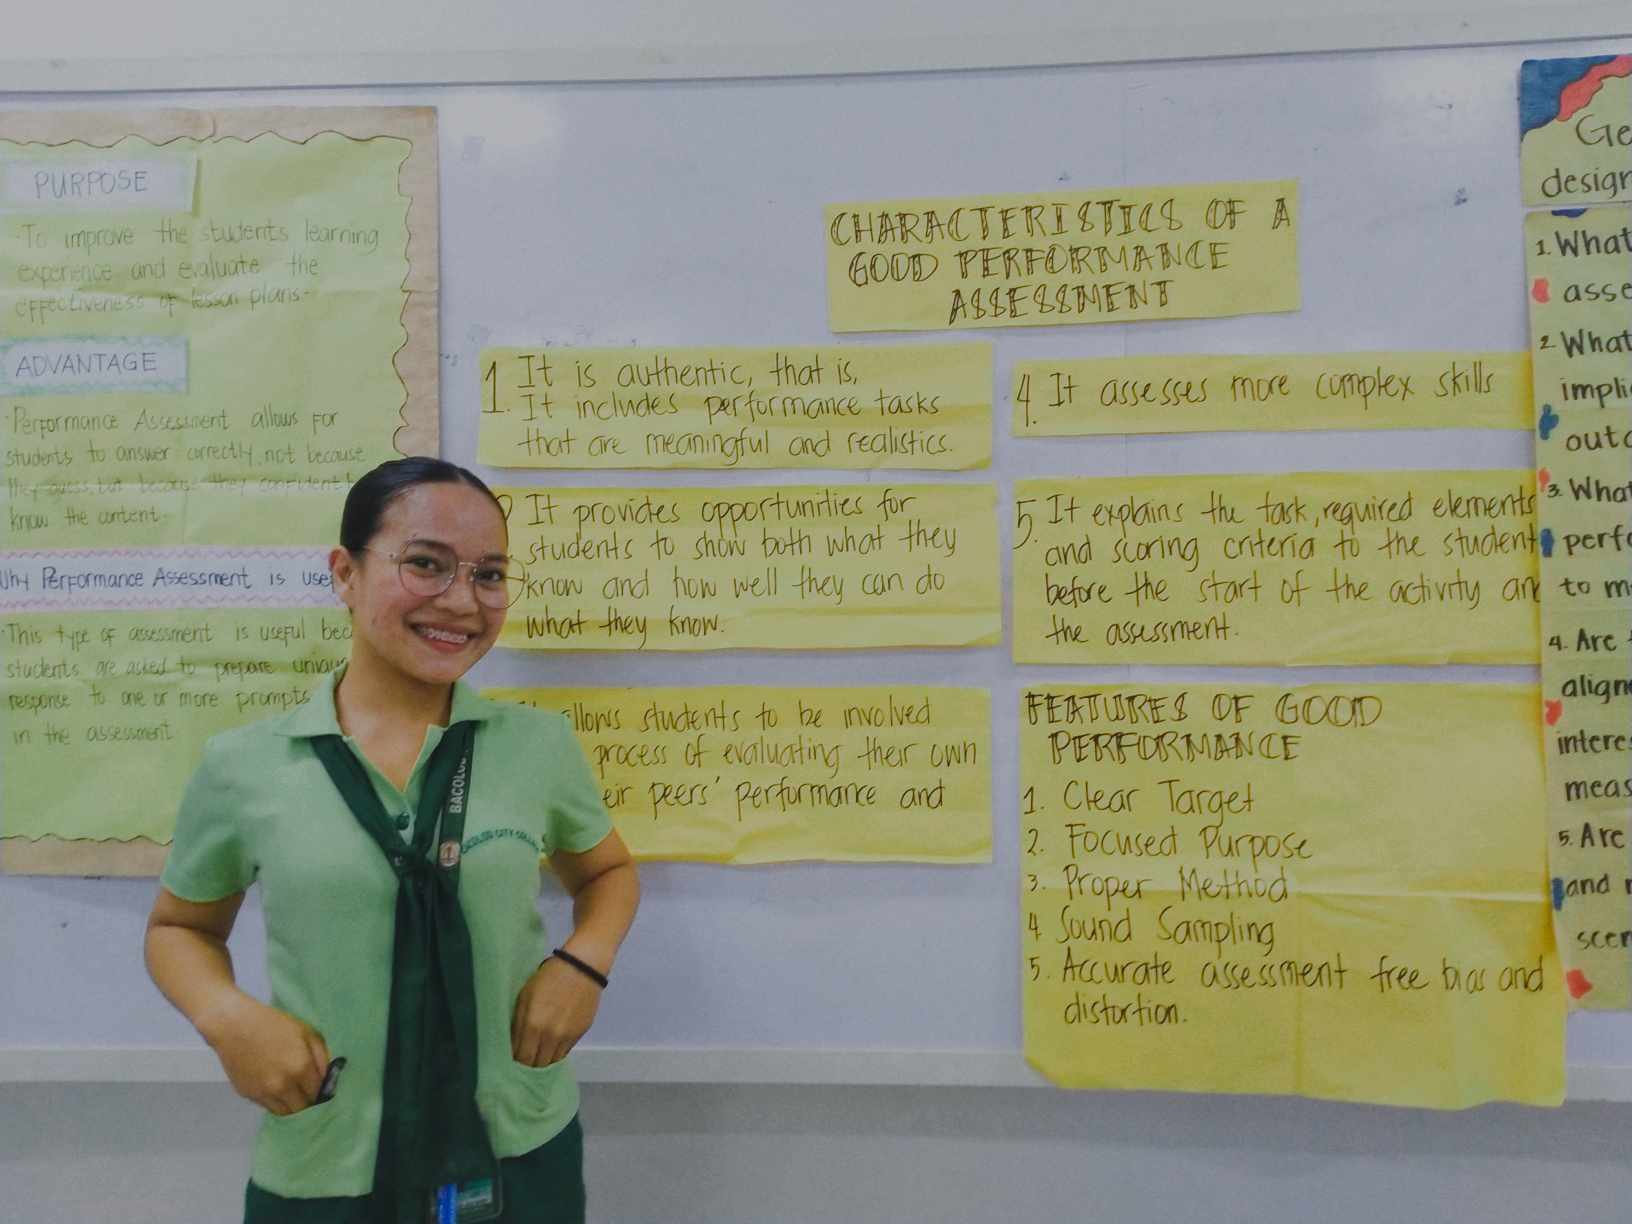 PURPOSE
To improve the students learning
experience and evaluate the
effectiveness of lesson plans.
ADVANTAGE
Performance Assessment allows for
students to answer correctly, not because
they guess, but because they confidently
know the content.
Why Performance Assessment is use
This type of assessment is useful bec
students are asked to prepare uniqu
response to one or more prompts
in the assessment
CHARACTERISTICS OF A
GOOD PERFORMANCE
ASSESSMENT
1. It is authentic, that is,
It includes performance tasks
that are meaningful and realistics.
2 It provides opportunities for
students to show both what they
know and how well they can do
what they know.
It allows students to be involved
process of evaluating their own
eir peers' performance and
4. It assesses more complex skills
5. It explains the task, required elements
and scoring criteria to the student
before the start of the activity an
the assessment.
FEATURES OF GOOD
PERFORMANCE
1. Clear Target
2. Focused Purpose
3. Proper Method
4 Sound Sampling
5. Accurate assessment free bias and
distortion.
Ge
design
1. What
asse
2. What
impli
outc
3. What
perfo
to m
4. Are
align
interes
meas
5. Are
and
scen
BACOLOD
BACOLOD CITY COLL